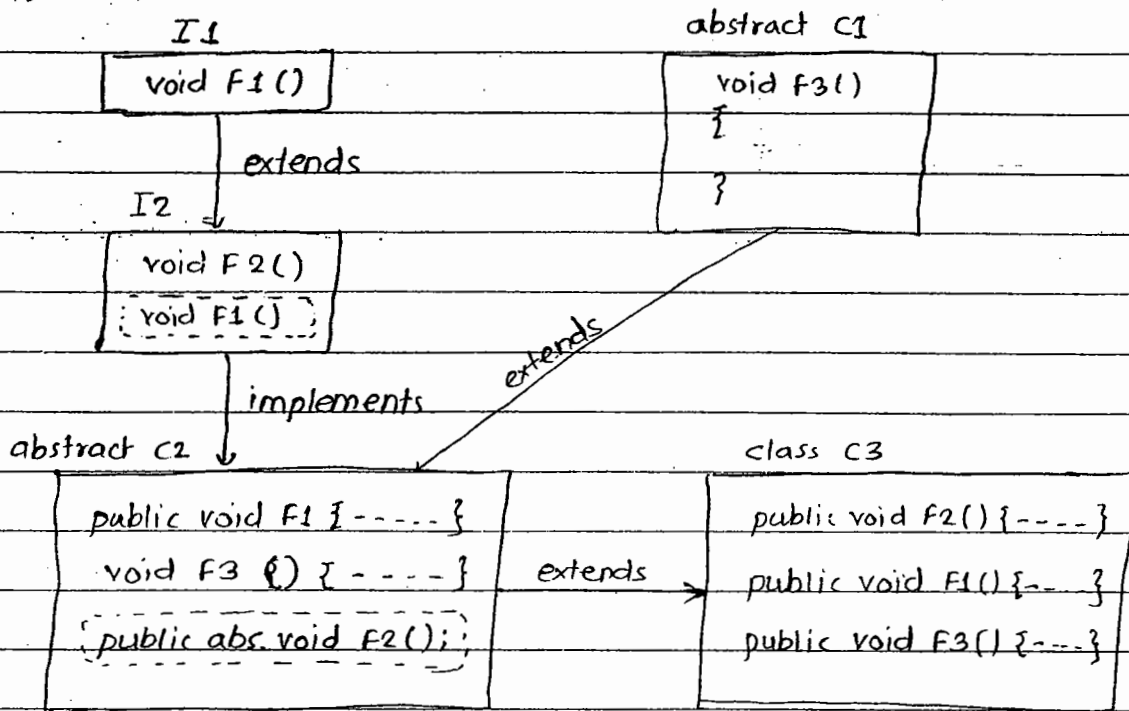 I1
void F1()
extends
I2
void F2()
void F1()
implements
abstract C1
void F3()
{
}
extends
abstract C2
public void F1 {-----}
void F3 () {----}
public abs. void F2();
extends
class C3
public void F2() {----}
public void F1() {-----}
public void F3() {----}